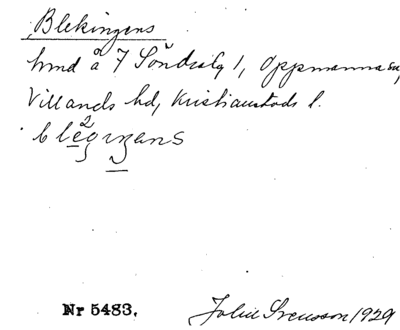 Blekingens
hmd å 7 Söndraby 1, Oppmanna sn,
Villands hd, Kristianstads l.
Nr 5483.
Svensson 1929